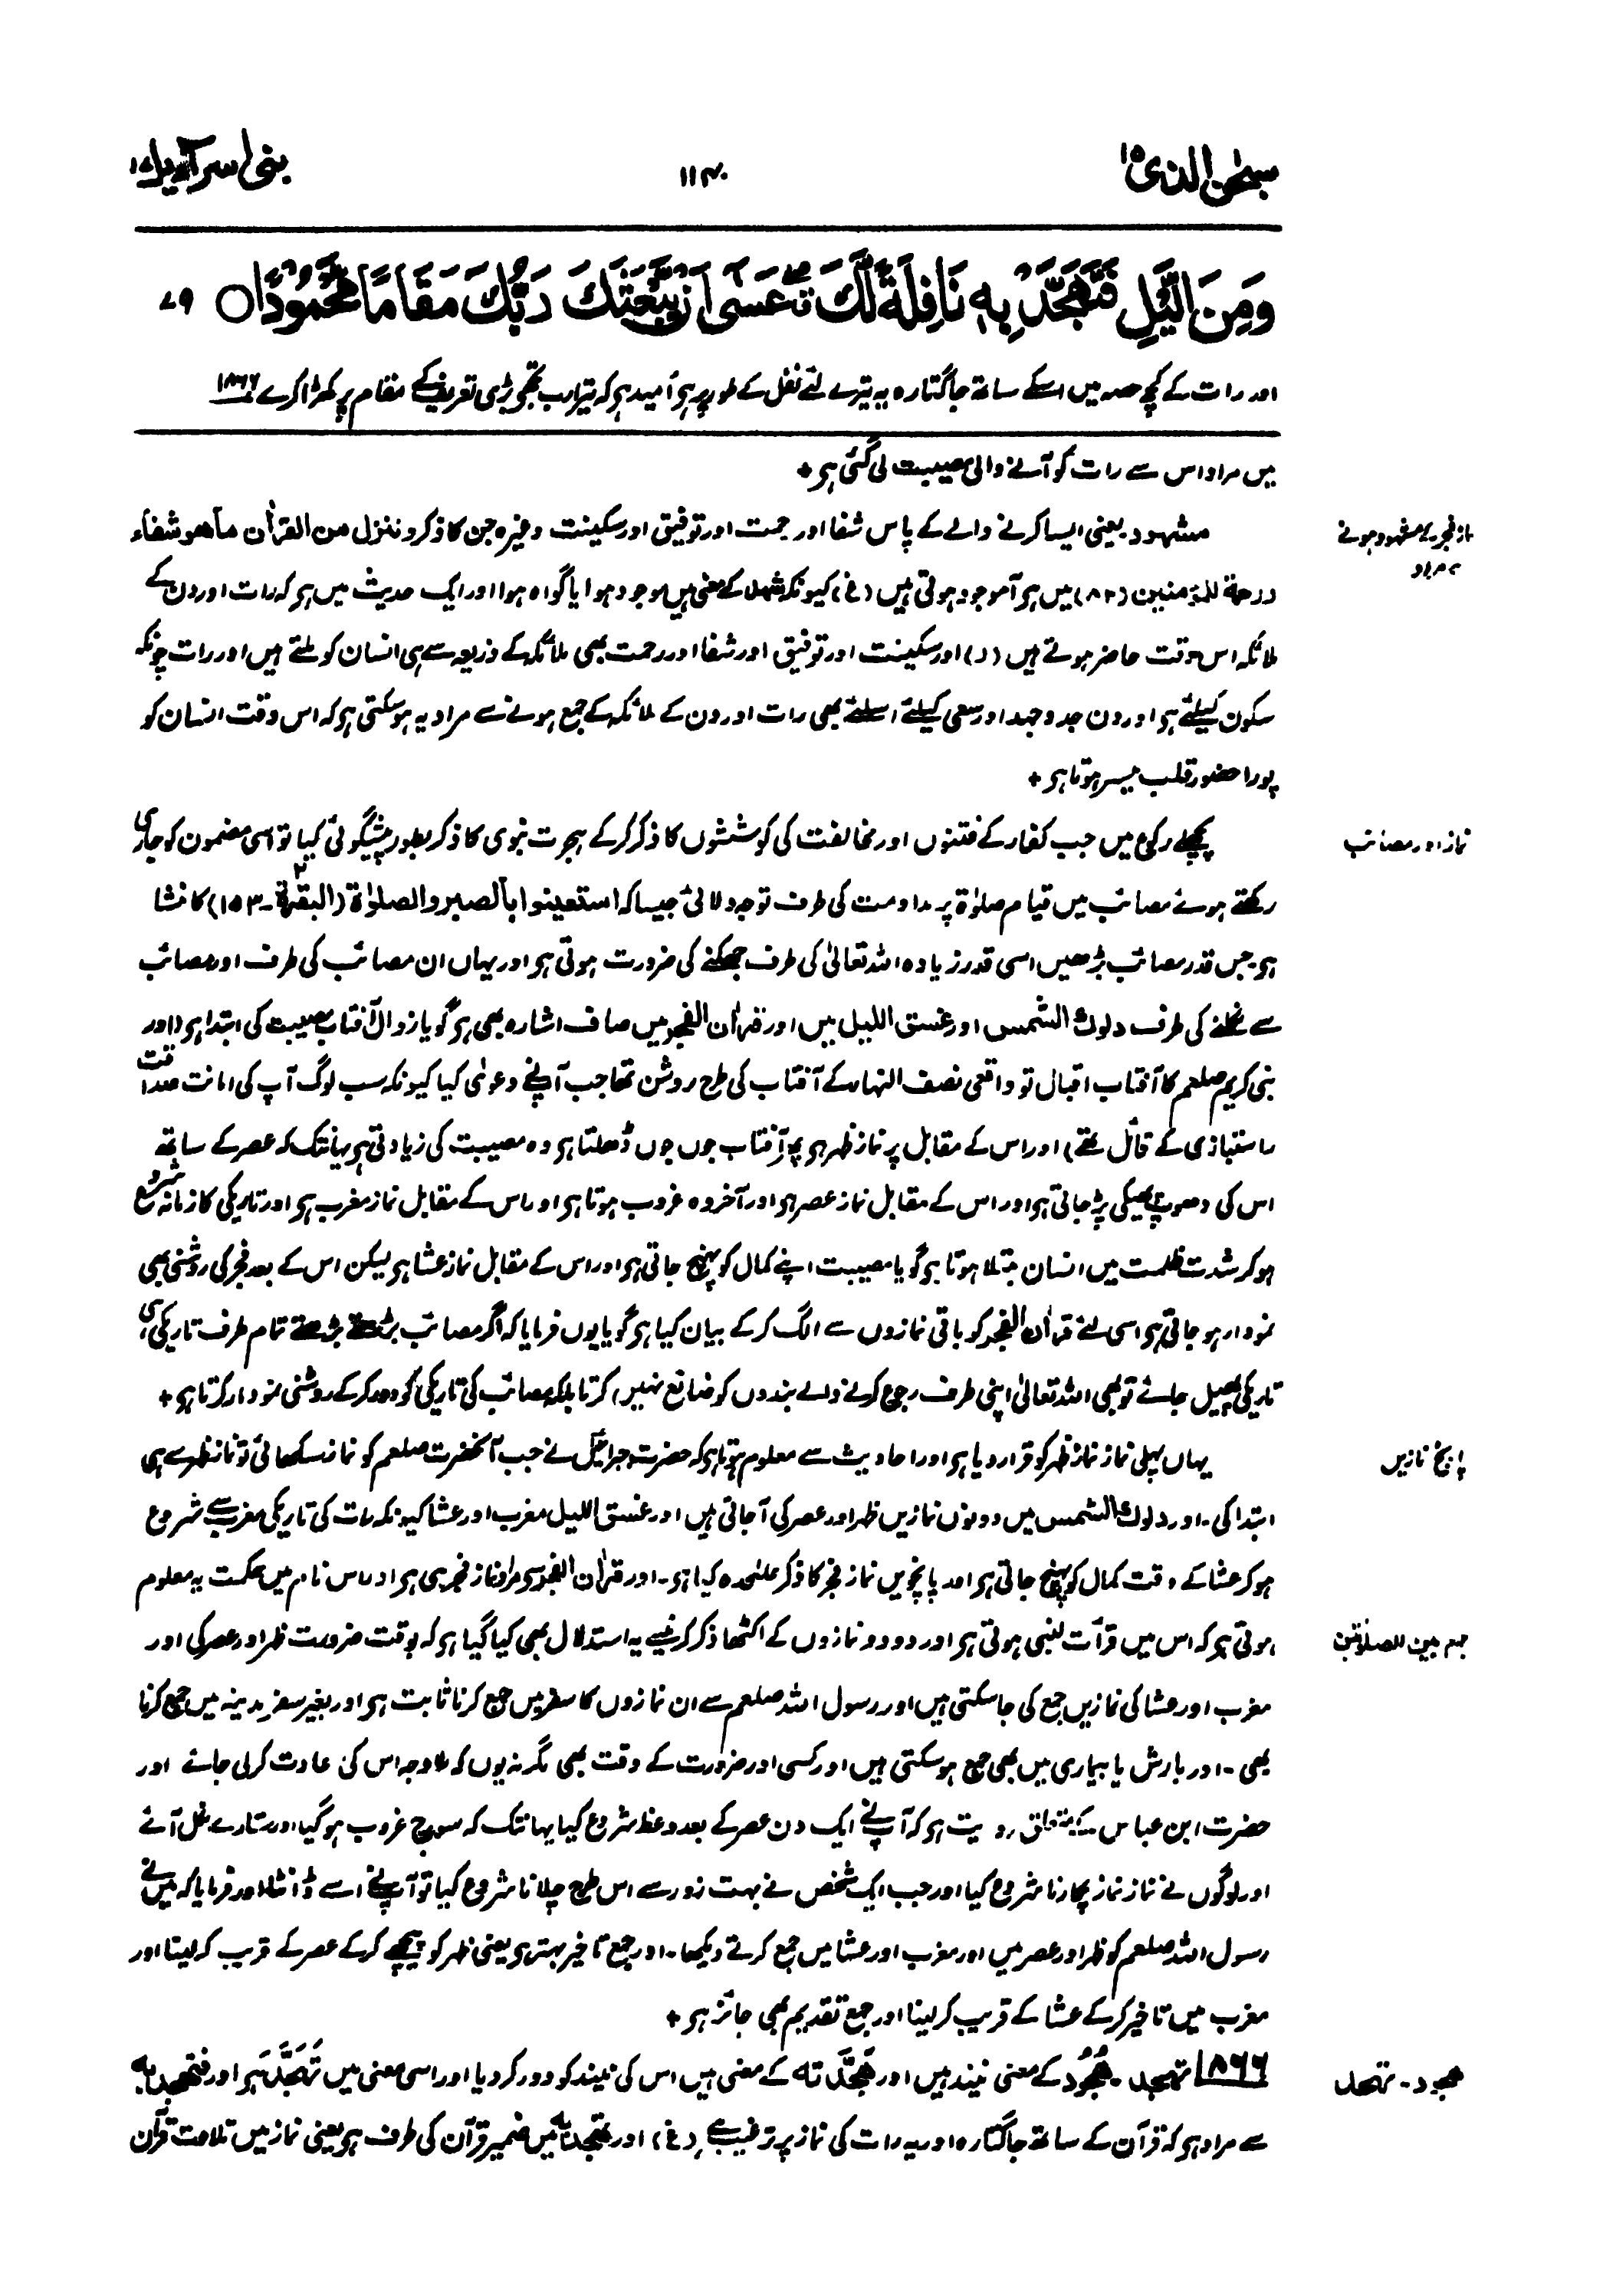 سبحٰن الذی ۱۵
۱۱۴۰
بنی اسرآءیل ۱۷
وَمِنَ الَّیْلِ فَتَهَجَّدْ بِهٖ نَافِلَةً لَّكَ ۖ عَسٰۤی اَنْ یَّبْعَثَكَ رَبُّكَ مَقَامًا مَّحْمُوْدًا ○ ۷۹
اور رات کے کچھ حصہ میں اسکے ساتھ جاگتا رہ یہ تیرے لئے نفل کے طور پر ہی اُمید ہی کہ تیرا رب تجھے بڑی تعریف کے مقام پر کھڑا کرے ۱۸۶۶
میں مراد اس سے رات کو آنے والی مصیبت لی گئی ہی +
نماز فجر کے مشہود ہونے
سے مراد
مشہود یعنی ایسا کرنے والے کے پاس شفا اور رحمت اور توفیق اور سکینت وغیرہ جن کا ذکر وننزل من القرآن ما هو شفاء
ورحمة للمؤمنین (۸۲) میں ہی آموجود ہوتی ہیں (غ) کیونکہ شھد کے معنی ہیں موجود ہوا یا گواہ ہوا اور ایک حدیث میں ہی کہ رات اور دن کے
ملائکہ اس وقت حاضر ہوتے ہیں (د) اور سکینت اور توفیق اور شفا اور رحمت بھی ملائکہ کے ذریعہ سے ہی انسان کو ملتے ہیں اور رات چونکہ
سکون کیلئے ہی اور دن جدوجہد اور سعی کیلئے اسلئے بھی رات اور دن کے ملائکہ کے جمع ہونے سے مراد یہ ہوسکتی ہی کہ اس وقت انسان کو
پورا حضور قلب میسر ہوتا ہی +
نماز اور مصائب
پچھلے رکوع میں جب کفار کے فتنوں اور مخالفت کی کوششوں کا ذکر کرکے ہجرت نبوی کا ذکر بطور پیشگوئی کیا تو اسی مضمون کو جاری
رکھتے ہوئے مصائب میں قیام صلوٰۃ پر مداومت کی طرف توجہ دلائی جیسا کہ استعینوا بالصبر والصلوٰة (البقرة ۲ - ۱۵۳) کا منشا
ہی۔ جس قدر مصائب بڑھیں اسی قدر زیادہ اللہ تعالیٰ کی طرف جھکنے کی ضرورت ہوتی ہی اور یہاں ان مصائب کی طرف اور مصائب
سے نکلنے کی طرف دلوك الشمس اور غسق اللیل میں اور قرآن الفجر میں صاف اشارہ بھی ہی گویا زوال آفتاب مصیبت کی ابتدا ہی (اور
نبی کریم صلعم کا آفتاب اقبال تو واقعی نصف النہار کے آفتاب کی طرح روشن تھا جب آپنے دعویٰ کیا کیونکہ سب لوگ آپ کی امانت صداقت
راستبازی کے قائل تھے) اور اس کے مقابل پر نماز ظہر ہی پھر آفتاب جوں جوں ڈھلتا ہی وہ مصیبت کی زیادتی ہی یہانتک کہ عصر کے ساتھ
اس کی دھوپ پھیکی پڑجاتی ہی اور اس کے مقابل نماز عصر ہی اور آخر وہ غروب ہوتا ہی اور اس کے مقابل نماز مغرب ہی اور تاریکی کا زمانہ شروع
ہوکر شدت ظلمت میں انسان مبتلا ہوتا ہی گویا مصیبت اپنے کمال کو پہنچ جاتی ہی اور اس کے مقابل نماز عشا ہی لیکن اس کے بعد فجر کی روشنی بھی
نمودار ہو جاتی ہی اسی لئے قرآن الفجر کو باقی نمازوں سے الگ کرکے بیان کیا ہی گویا یوں فرمایا کہ اگر مصائب بڑھتے بڑھتے تمام طرف تاریکی ہی
تاریکی پھیل جائے تو بھی اللہ تعالیٰ اپنی طرف رجوع کرنے والے بندوں کو ضائع نہیں کرتا بلکہ مصائب کی تاریکی کو دور کرکے روشنی نمودار کرتا ہی +
پانچ نمازیں
یہاں پہلی نماز نماز ظہر کو قرار دیا ہی اور احادیث سے معلوم ہوتا ہی کہ حضرت جبرائیلؑ نے جب آنحضرت صلعم کو نماز سکھائی تو نماز ظہر سے ہی
ابتدا کی۔ اور دلوك الشمس میں دونوں نمازیں ظہر اور عصر کی آجاتی ہیں اور غسق اللیل مغرب اور عشا کیونکہ رات کی تاریکی مغرب سے شروع
ہوکر عشا کے وقت کمال کو پہنچ جاتی ہی اور پانچویں نماز فجر کا ذکر علیٰحدہ کیا ہی۔ اور قرآن الفجر سے مراد نماز فجر ہی ہی اور اس نام میں حکمت یہ معلوم
جمع بین الصلوٰتین
ہوتی ہی کہ اس میں قرأت لمبی ہوتی ہی اور دو دو نمازوں کے اکٹھا ذکر کرنیسے یہ استدلال بھی کیا گیا ہی کہ بوقت ضرورت ظہر اور عصر کی اور
مغرب اور عشا کی نمازیں جمع کی جاسکتی ہیں اور رسول اللہ صلعم سے ان نمازوں کا سفر میں جمع کرنا ثابت ہی اور بغیر سفر مدینہ میں جمع کرنا
بھی۔ اور بارش یا بیماری میں بھی جمع ہوسکتی ہیں اور کسی اور ضرورت کے وقت بھی مگر نہ یوں کہ بلاوجہ اس کی عادت کرلی جائے اور
حضرت ابن عباس کے متعلق روایت ہی کہ آپنے ایک دن عصر کے بعد وعظ شروع کیا یہانتک کہ سورج غروب ہوگیا اور ستارے نکل آئے
اور لوگوں نے نماز نماز پکارنا شروع کیا اور جب ایک شخص نے بہت زور سے اس طرح چلانا شروع کیا تو آپنے اسے ڈانٹا اور فرمایا کہ میں نے
رسول اللہ صلعم کو ظہر اور عصر میں اور مغرب اور عشا میں جمع کرتے دیکھا۔ اور جمع تاخیر بہتر ہی یعنی ظہر کو پیچھے کرکے عصر کے قریب کرلینا اور
مغرب میں تاخیر کرکے عشا کے قریب کرلینا اور جمع تقدیم بھی جائز ہی +
هجود - تهجد
۱۸۶۶ تهجد۔ هُجُوْد کے معنی نیند ہیں اور هَجَّدتُه کے معنی ہیں اس کی نیند کو دور کردیا اور اسی معنی میں تَهَجَّدَ ہی اور فتهجد به
سے مراد ہی کہ قرآن کے ساتھ جاگتا رہ اور یہ رات کی نماز پر ترغیب ہے (غ) اور فتهجد به میں ضمیر قرآن کی طرف ہی یعنی نماز میں تلاوت قرآن